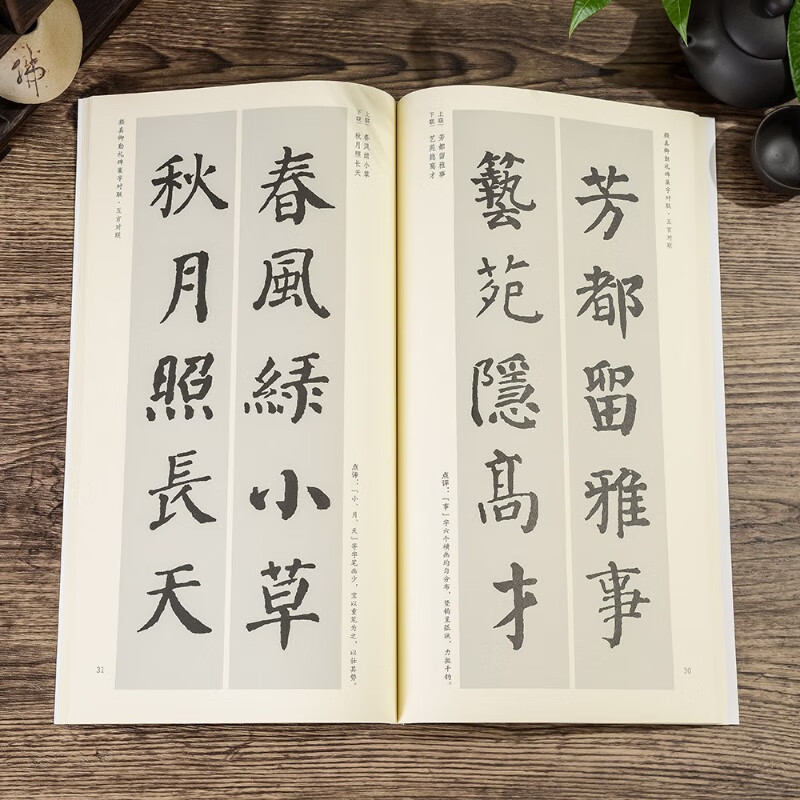 颜真卿勤礼碑集字对联·五言对联
芳都留雅事
藝苑隱高才
上联 芳都留雅事
下联 艺苑隐高才
点评：「事」字六个横画均匀分布，竖钩呈弧，力千钧。
30
春風緑小草
秋月照長天
上联 春风绿小草
下联 秋月照长天
点评：「小、月、天」等字笔画少，宜以重笔为之，以壮其势。
颜真卿勤礼碑集字对联·五言对联
31